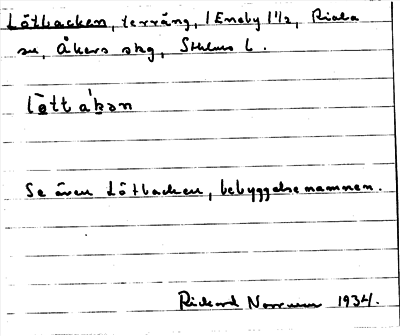 Lötbacken, terräng, 1 Eneby 1 1/2, Riala
sn, Åkers skg, Sthlms l.
lö̀ttákən
Se även Lötbacken, bebyggelsenamnen.
Rickard Norrman 1934.